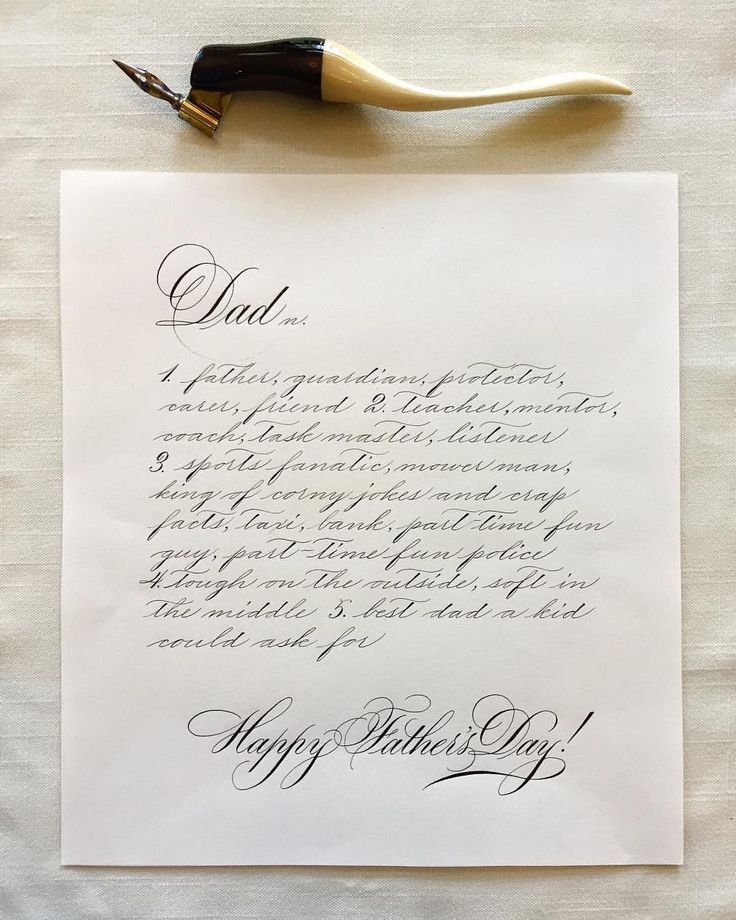 Dad n.
1. father, guardian, protector,
carer, friend 2. teacher, mentor,
coach, task master, listener
3. sports fanatic, mower man,
king of corny jokes and crap
facts, taxi, bank, part-time fun
guy, part-time fun police
4. tough on the outside, soft in
the middle 5. best dad a kid
could ask for
Happy Father's Day!